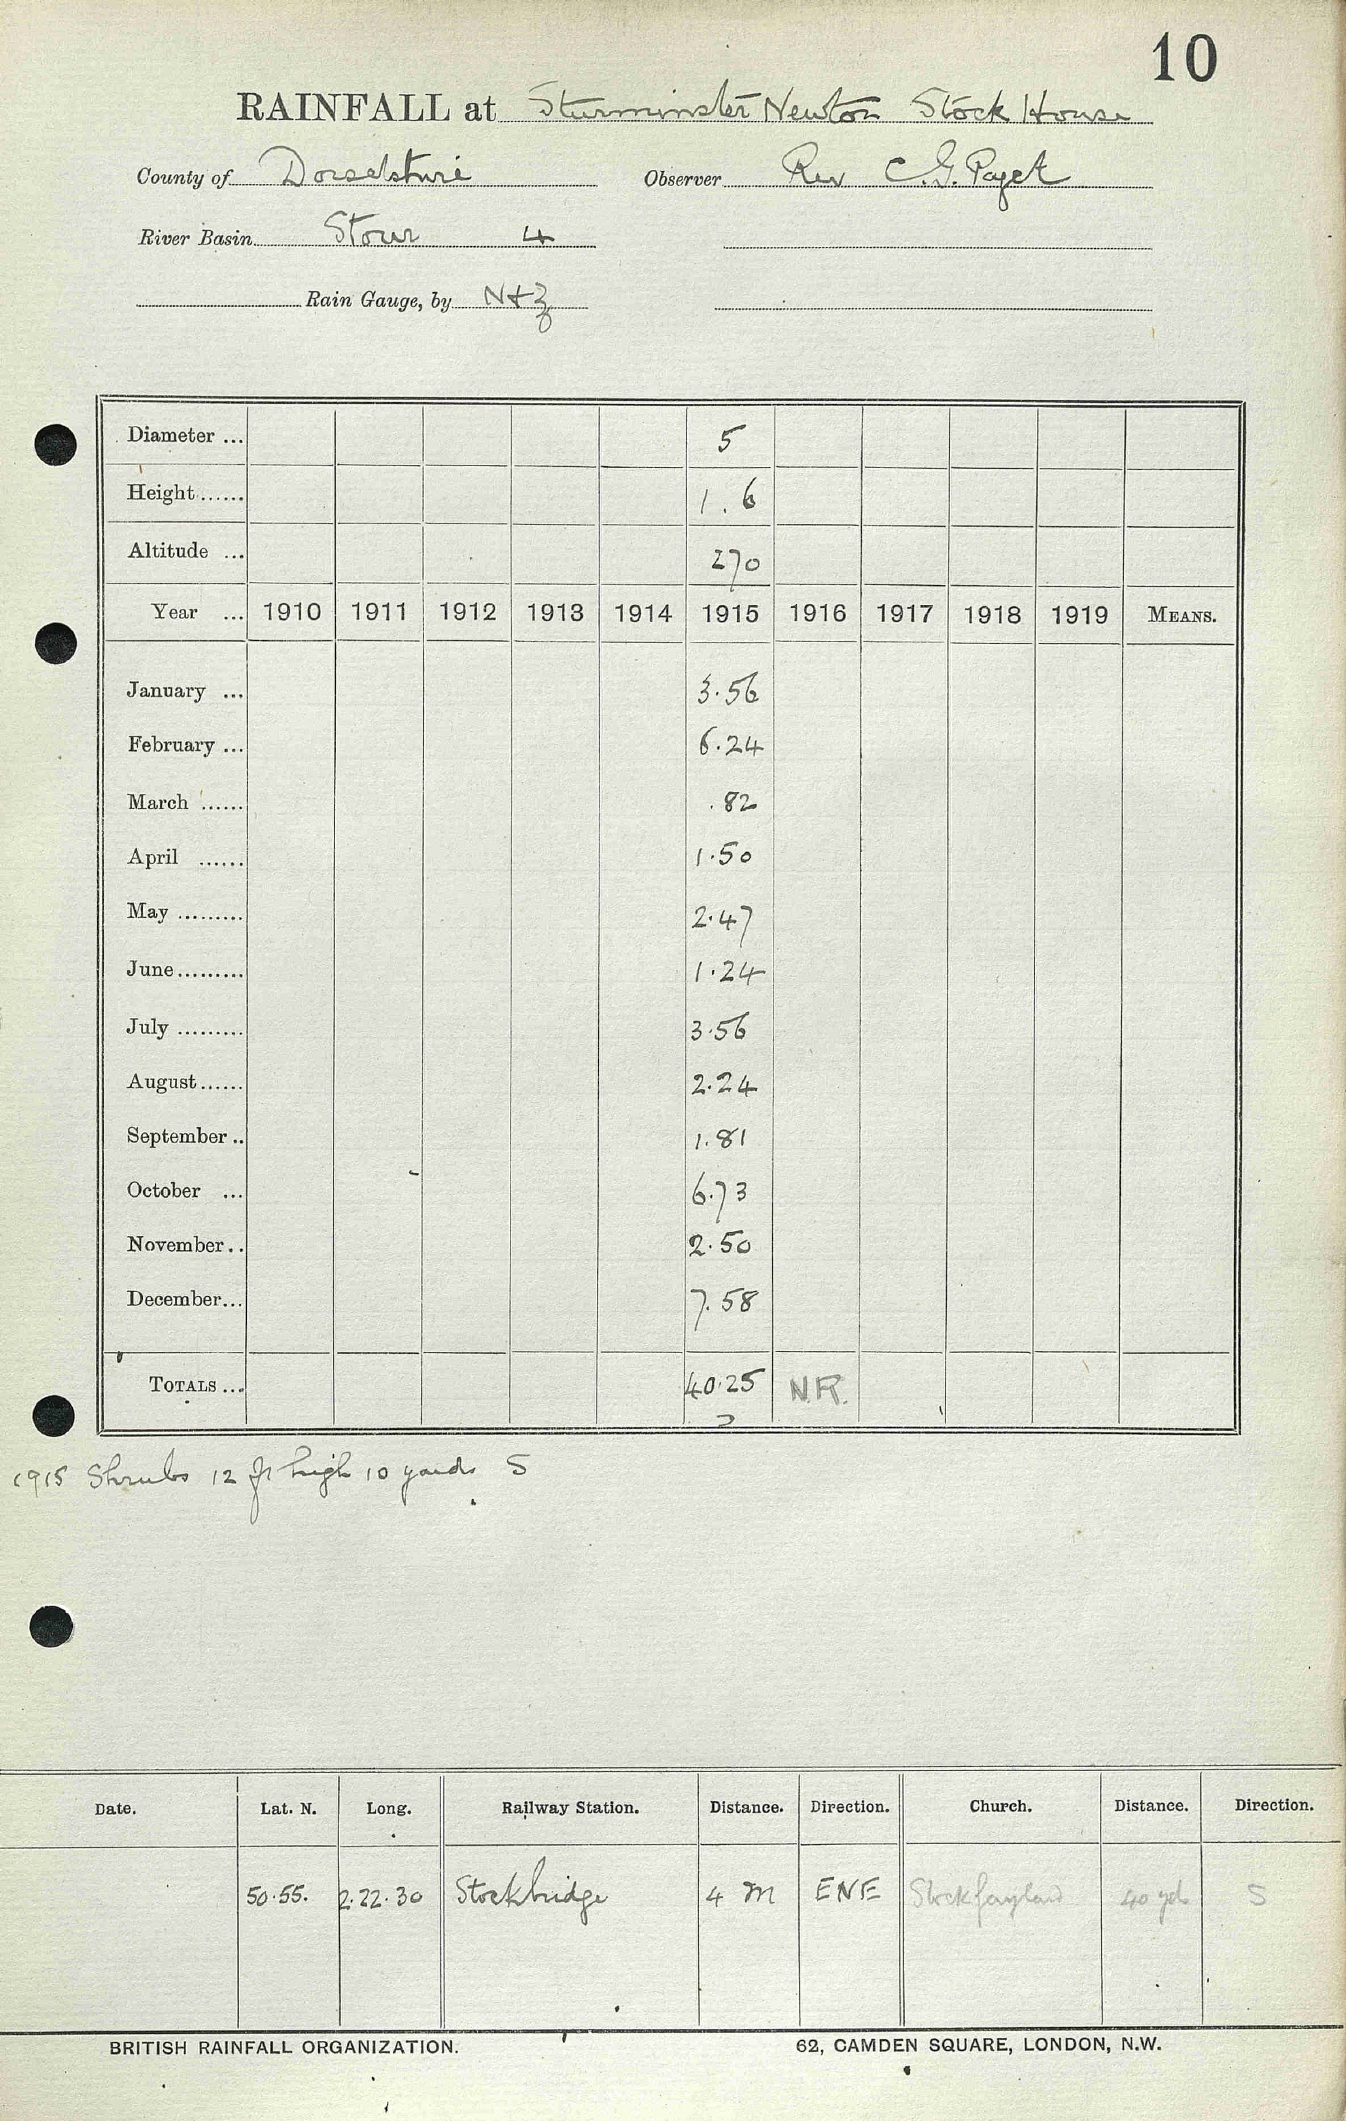 10
RAINFALL at Sturminster Newton Stock House
County of Dorsetshire Observer Rev C. G. Paget
River Basin Stour 4
Rain Gauge, by N & Z
Diameter ... 5
Height ...... 1.6
Altitude ... 270
Year ... 1910 1911 1912 1913 1914 1915 1916 1917 1918 1919 MEANS.
January ... 3.56
February ... 6.24
March ...... .82
April ...... 1.50
May ......... 2.47
June ......... 1.24
July ......... 3.56
August ...... 2.24
September .. 1.81
October ... 6.73
November .. 2.50
December ... 7.58
TOTALS ... 40.25 N.R.
1915 Shrubs 12 ft high 10 yards S
Date. Lat. N. Long. Railway Station. Distance. Direction. Church. Distance. Direction.
50.55. 2.22.30 Stockbridge 4 m ENE Stock Gayland 40 yds S
BRITISH RAINFALL ORGANIZATION. 62, CAMDEN SQUARE, LONDON, N.W.